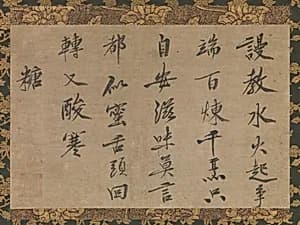 謾教水火起爭
端百煉千熬只
自安滋味莫言
都似蜜舌頭回
轉又酸寒
糖